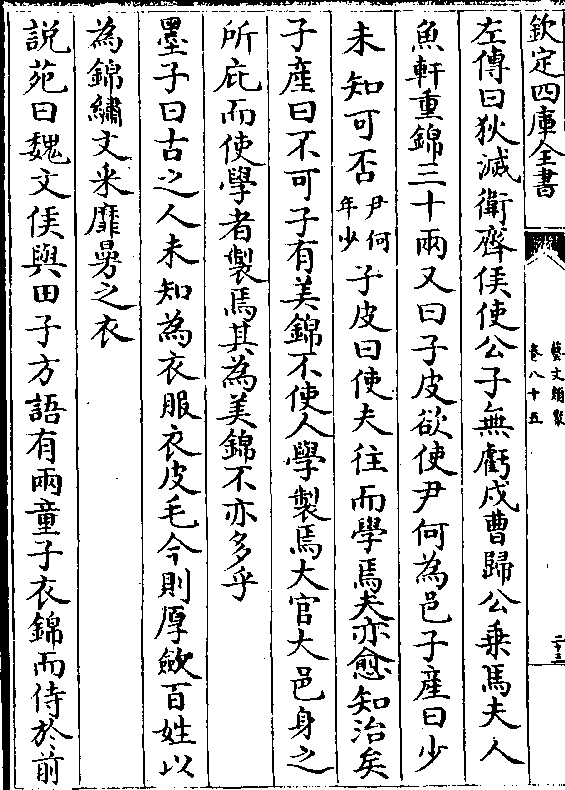 欽定四庫全書
藝文類聚
卷八十五
二十三
左傳曰狄滅衛齊侯使公子無虧戍曹歸公乗馬夫人
魚軒重錦三十兩又曰子皮欲使尹何為邑子産曰少
未知可否尹何年少子皮曰使夫往而學焉夫亦愈知治矣
子産曰不可子有美錦不使人學製焉大官大邑身之
所庇而使學者製焉其為美錦不亦多乎
墨子曰古之人未知為衣服衣皮毛今則厚斂百姓以
為錦繡文采靡曼之衣
說苑曰魏文侯與田子方語有兩童子衣錦而侍於前